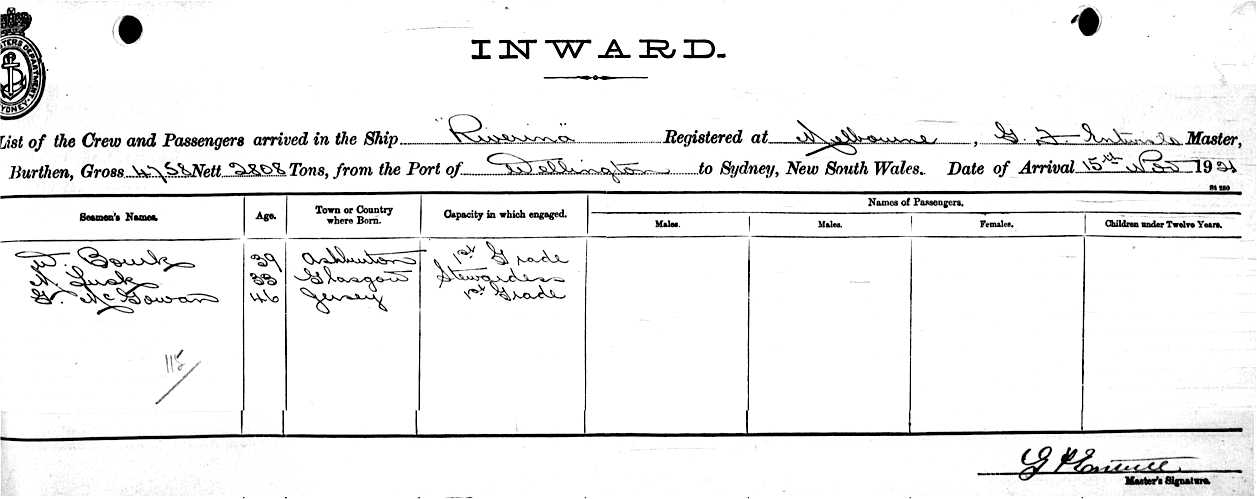 INWARD.
List of the Crew and Passengers arrived in the Ship "Riverina" Registered at Melbourne, G. Master,
Burthen, Gross 4758 Nett 2808 Tons, from the Port of Wellington to Sydney, New South Wales. Date of Arrival 15th Nov 1921
Seamen's Names. Age. Town or Country where Born. Capacity in which engaged. Names of Passengers.
Males. Males. Females. Children under Twelve Years.
W. Bourk 39 Ashburton 1st Grade
M. Lusk 33 Glasgow Stewardess
G. McGowan 46 Jersey 1st Grade
115
Master's Signature.